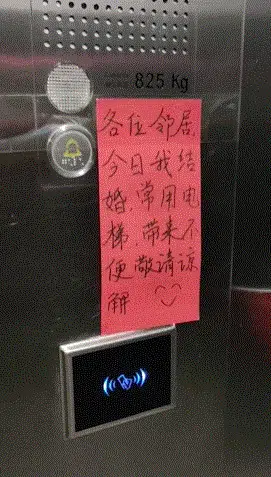 825 Kg
各位邻居
今日我结
婚，常用电
梯，带来不
便敬请谅
解